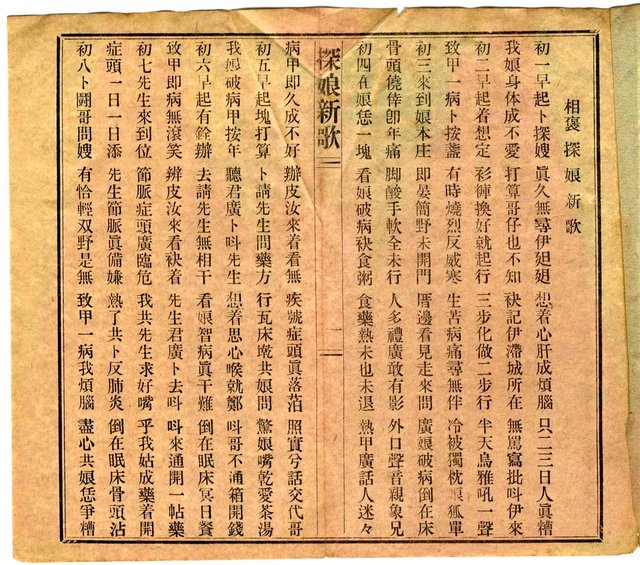 相褒探娘新歌
初一早起卜探嫂 眞久無尋伊廻廻 想着心肝成煩腦 只二三日人眞糟
我娘身体成不愛 打算哥仔也不知 袂記伊滯城所在 無罵寫批呌伊來
初二早起着想定 彩褌換好就起行 三步化做二步行 半天鳥雅吼一聲
致甲一病卜按盞 有時燒烈反威寒 生苦病痛尋無伴 冷被獨枕娘狐單
初三來到娘本庄 即晏簡野未開門 厝邊看見走來問 廣娘破病倒在床
骨頭僥倖卽年痛 脚酸手軟全未行 人多禮廣敢有影 外口聲音親象兄
初四在娘恁一塊 看娘破病袂食粥 食藥熱未也未退 熱甲廣話人迷々
探娘新歌
二
病甲即久成不好 辦皮汝來着看無 疾號症頭眞落萡 照實兮話交代哥
初五早起塊打算 卜請先生問藥方 行瓦床乾共娘問 驚娘嘴乾愛茶湯
我娘破病甲按年 聽君廣卜呌先生 想着思心喉就鄭 呌哥不涌箱開錢
初六早起有銓辦 去請先生無相干 看娘智病眞干難 倒在眠床冥日餐
致甲即病無滾笑 辨皮汝來看袂着 先生君廣卜去呌 呌來通開一帖藥
初七先生來到位 節脈症頭廣臨危 我共先生求好嘴 乎我姑成藥着開
症頭一日一日添 先生節脈眞備嫌 熱了共卜反肺炎 倒在眠床骨頭沾
初八卜鬪哥問嫂 有恰輕双野是無 致甲一病我煩腦 盡心共娘恁爭糟